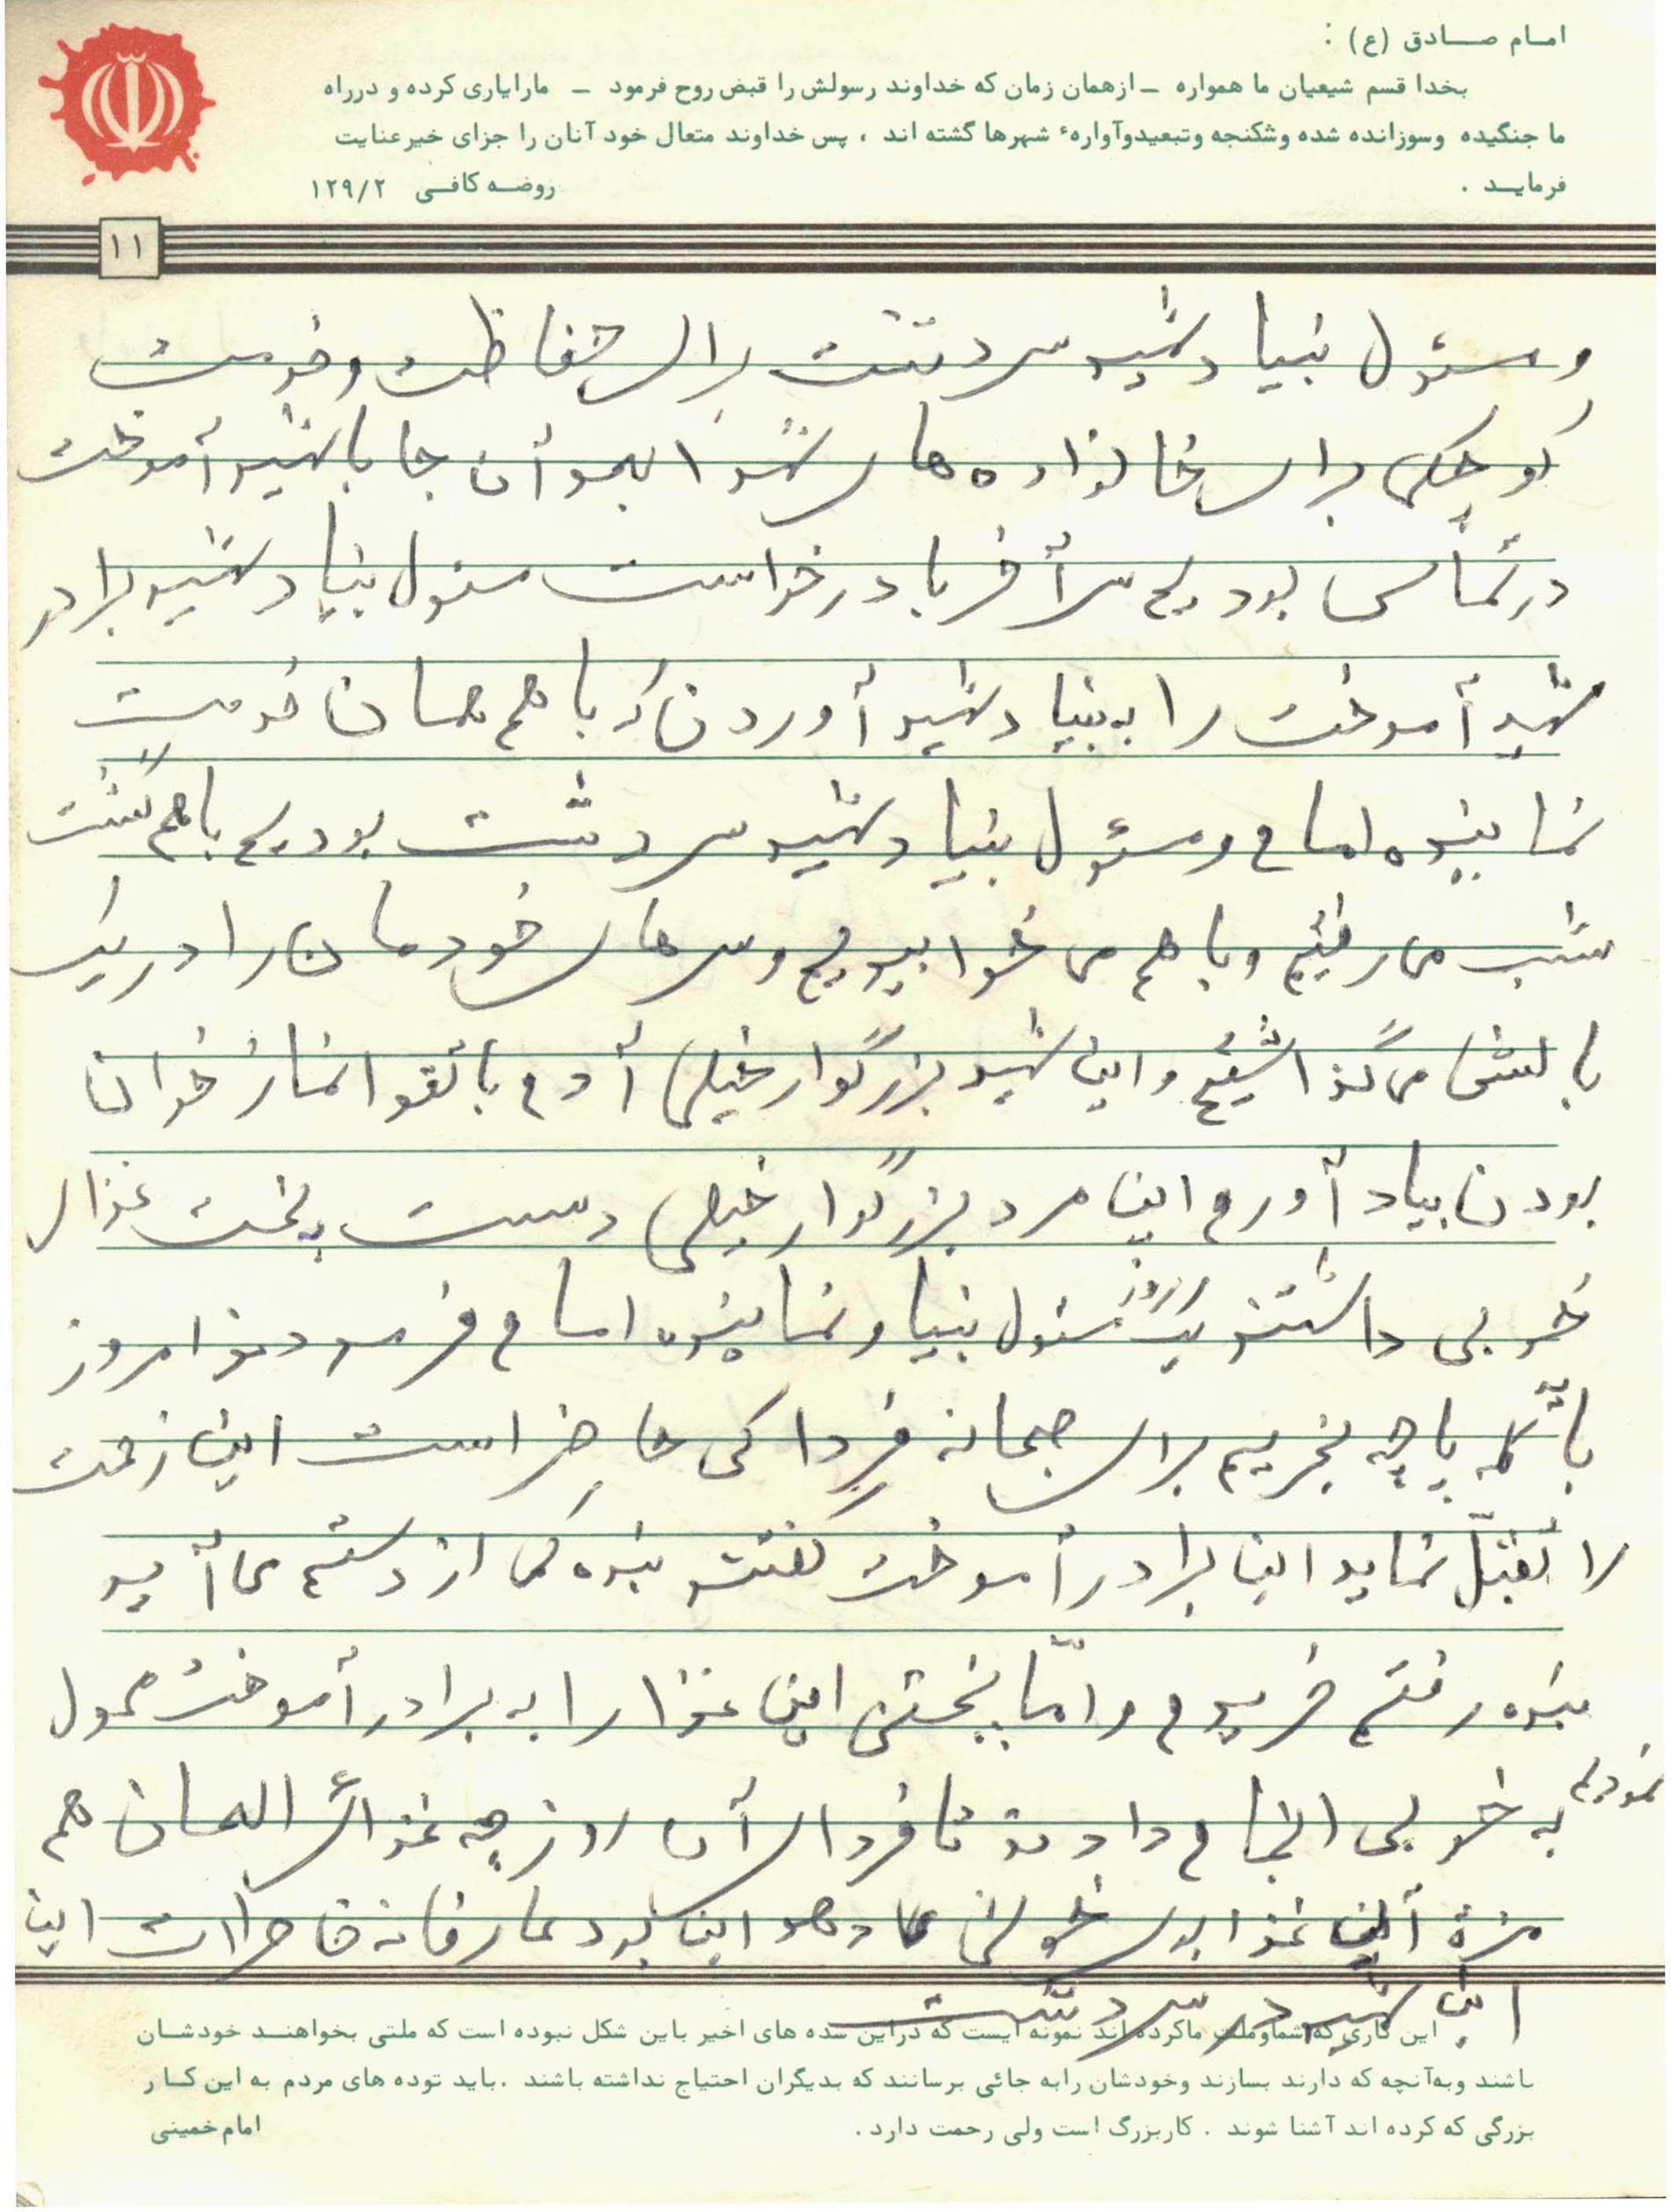 امام صادق (ع) :
بخدا قسم شیعیان ما همواره – ازهمان زمان که خداوند رسولش را قبض روح فرمود – مارایاری کرده و درراه
ما جنگیده وسوزانده شده وشکنجه وتبعیدوآوارهٔ شهرها گشته اند ، پس خداوند متعال خود آنان را جزای خیرعنایت
فرماید .
روضه کافی ۱۲۹/۲
۱۱
و مسئول بنیاد شهید سردشت برای حفاظت و خدمت
کوچکی برای خانواده های شهدا بعد آن جا با شهید آموخت
در تماس بودیم سرآخر با درخواست مسئول بنیاد شهید برادر
شهید آموخت را به بنیاد شهید آوردن که با هم همان خدمت
نماینده امام و مسئول بنیاد شهید سردشت بودیم باهم گشت
شب می رفتیم و با هم می خوابیدیم و سرهای خودمان را در یک
بالش می گذاشتیم و این شهید بزرگوار خیلی آدم با تقوا نماز خوان
بودن بیاد آورم این مرد بزرگوار خیلی دست پخت غذای
خوبی داشتند یک روز مسئول بنیاد و نماینده امام فرمودند امروز
باید کله پاچه بخریم برای صبحانه فردا کی حاضر است این زحمت
را تقبّل نماید این برادر آموخت گفتند بنده کی از دستم می آید
بنده رفتم خریدم و امّا پختن این غذا را به برادر آموخت محول
نمودیم
به خوبی انجام دادند تا فردای آن روز چه غذائی الهان هم
مزهٔ این غذا بوی خوش می دهد این بود عارفانه خاطرات این
این شهید در سردشت
این کاری که شماوملت ماکرده اند نمونه ایست که دراین سده های اخیر باین شکل نبوده است که ملتی بخواهند خودشان
باشند وبه‌آنچه که دارند بسازند وخودشان رابه جائی برسانند که بدیگران احتیاج نداشته باشند .باید توده های مردم به این کار
بزرگی که کرده اند آشنا شوند . کاربزرگ است ولی رحمت دارد .
امام خمینی